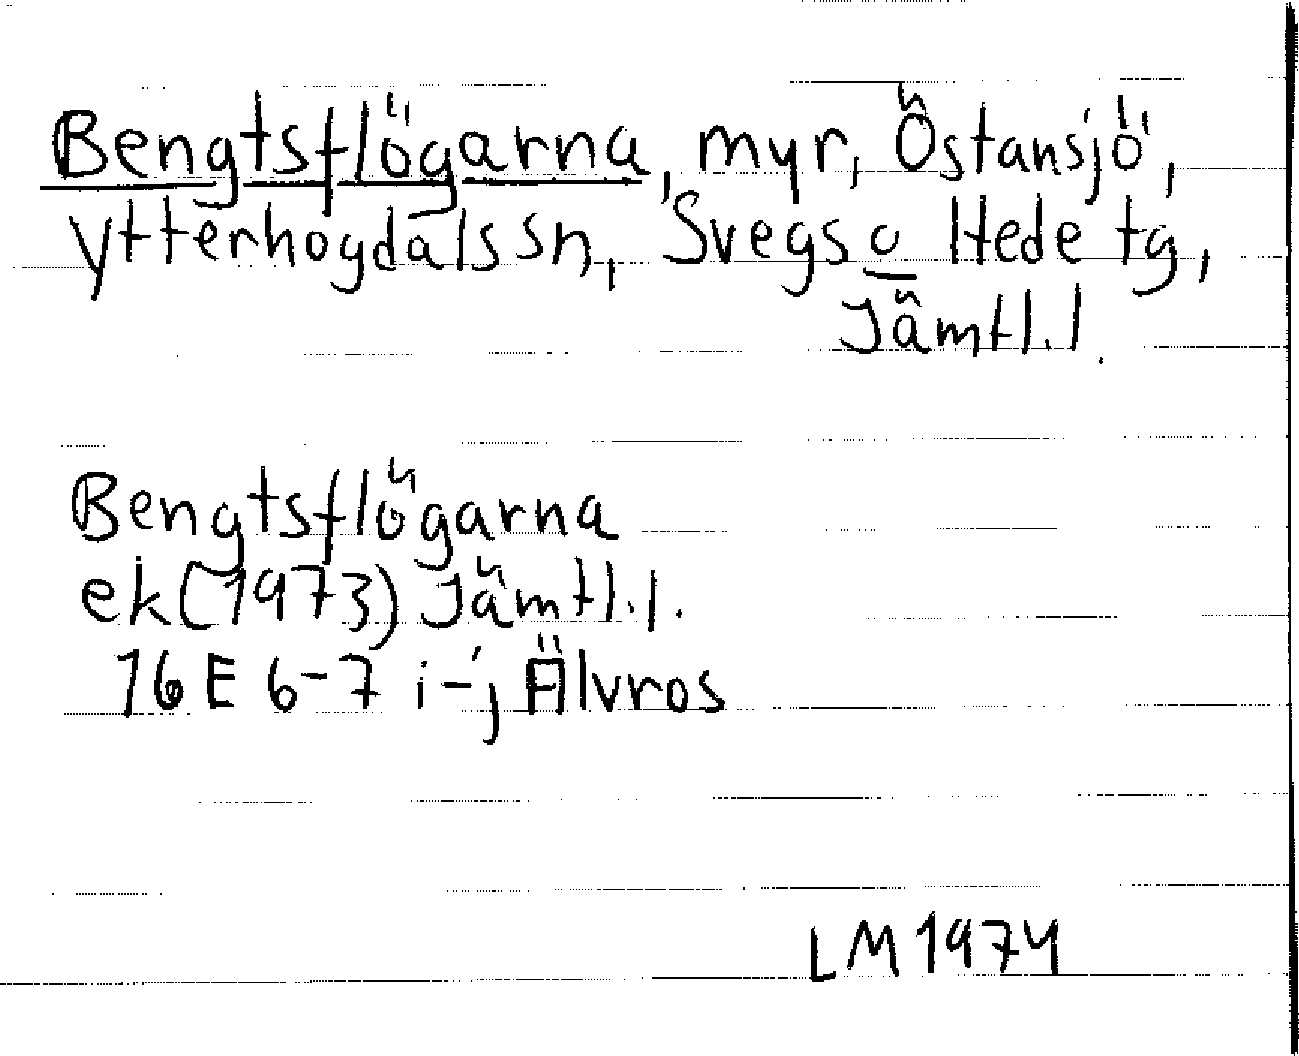 Bengtsflögarna, myr, Östansjö,
Ytterhogdals sn, Svegs o Hede tg,
Jämtl. l.
Bengtsflögarna
ek (1973) Jämtl. l.
16 E 6-7 i-j Älvros
LM 1974